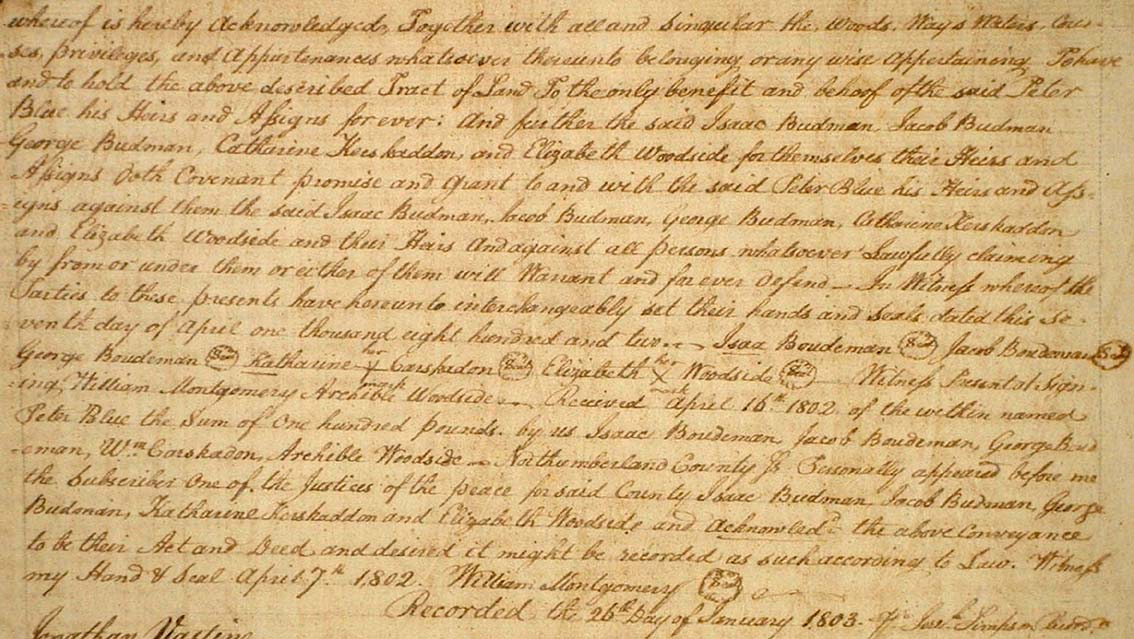 whereof is hereby Acknowledged, Together with all and Singular the Woods, Ways Waters, Cour-
ses, privileges, and Appurtenances whatsoever thereunto belonging or any wise Appertaining To have
and to hold the above described Tract of Land To the only benefit and behoof of the said Peter
Blue his Heirs and Assigns for ever: And further the said Isaac Budman, Jacob Budman
George Budman, Catharine Kerskaddon, and Elizabeth Woodside for themselves their Heirs and
Assigns Doth Covenant promise and Grant to and with the said Peter Blue his Heirs and Ass-
-igns against them the said Isaac Budman, Jacob Budman, George Budman, Catharine Kerskaddon
and Elizabeth Woodside and their Heirs And against all persons whatsoever Lawfully claiming
by from or under them or either of them will Warrant and for ever Defend — In Witness whereof the
Parties to these presents have hereunto interchangeably set their hands and seals dated this Se-
venth day of April one thousand eight hundred and two. — Isaac Boudeman Seal Jacob Boudeman Seal
George Boudeman Seal Katharine her X mark Carskadon Seal Elizabeth her X mark Woodside Seal — Witness Present at Sign-
-ing, William Montgomery Archible Woodside — Received April 16th 1802 of the within named
Peter Blue the Sum of One hundred pounds. by us Isaac Boudeman, Jacob Boudeman, George Boud
-eman, Wm Carskadon, Archible Woodside — Northumberland County Ss Personally appeared before me
the Subscriber One of the Justices of the peace for said County Isaac Budman, Jacob Budman, George
Budman, Katharine Kerskaddon and Elizabeth Woodside and Acknowled'd the above Conveyance
to be their Act and Deed and desired it might be recorded as such according to Law. Witness
my Hand & Seal April 7th 1802. William Montgomery Seal
Recorded the 26th Day of January 1803 Simpson
Jonathan Vastine